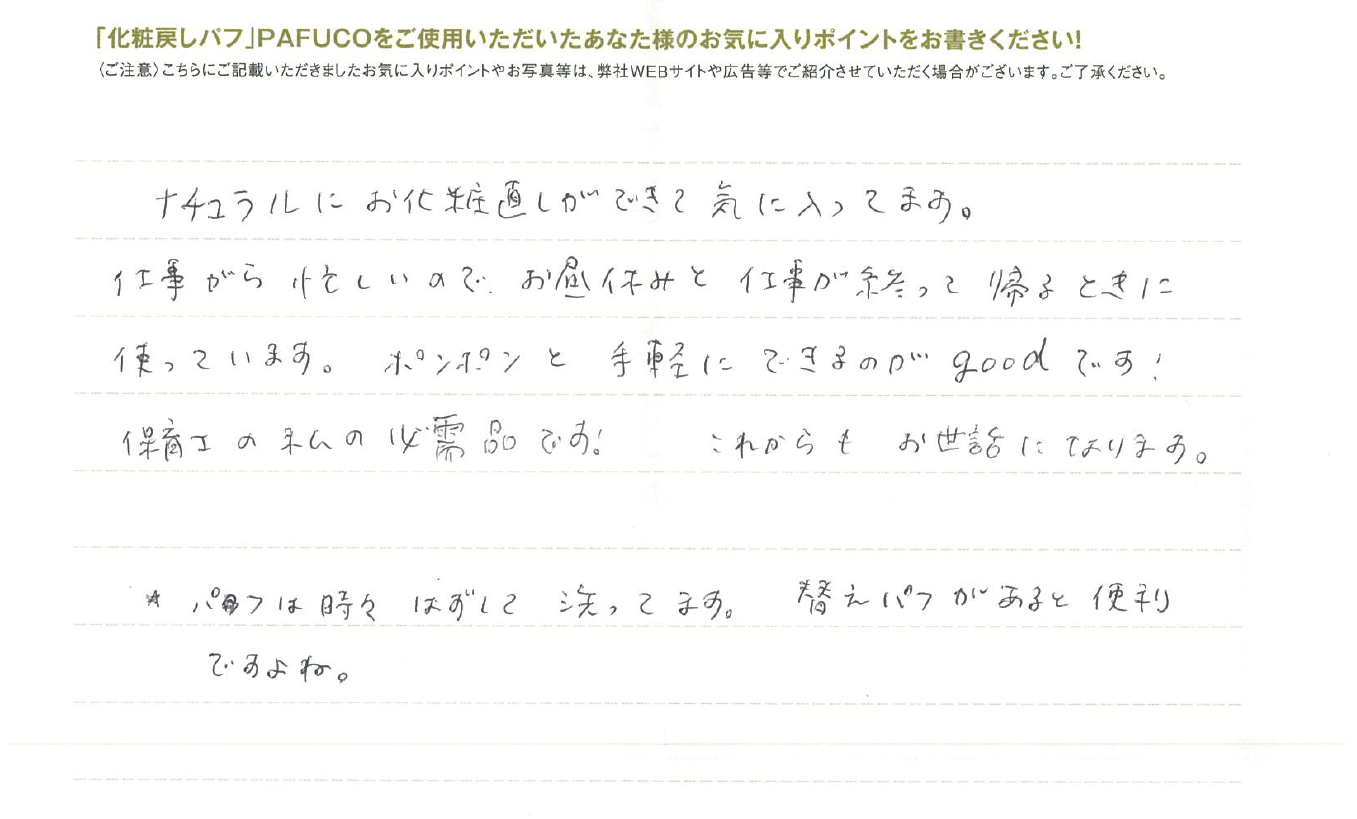 「化粧戻しパフ」PAFUCOをご使用いただいたあなた様のお気に入りポイントをお書きください!
〈ご注意〉こちらにご記載いただきましたお気に入りポイントやお写真等は、弊社WEBサイトや広告等でご紹介させていただく場合がございます。ご了承ください。
ナチュラルに お化粧直しができて 気に入ってます。
仕事がら 忙しいので、お昼休みと 仕事が終って 帰るときに
使っています。 ポンポンと 手軽にできるのが goodです!
保育士の私の必需品です! これからも お世話になります。
* パフは時々 はずして 洗ってます。 替えパフがあると便利
ですよね。